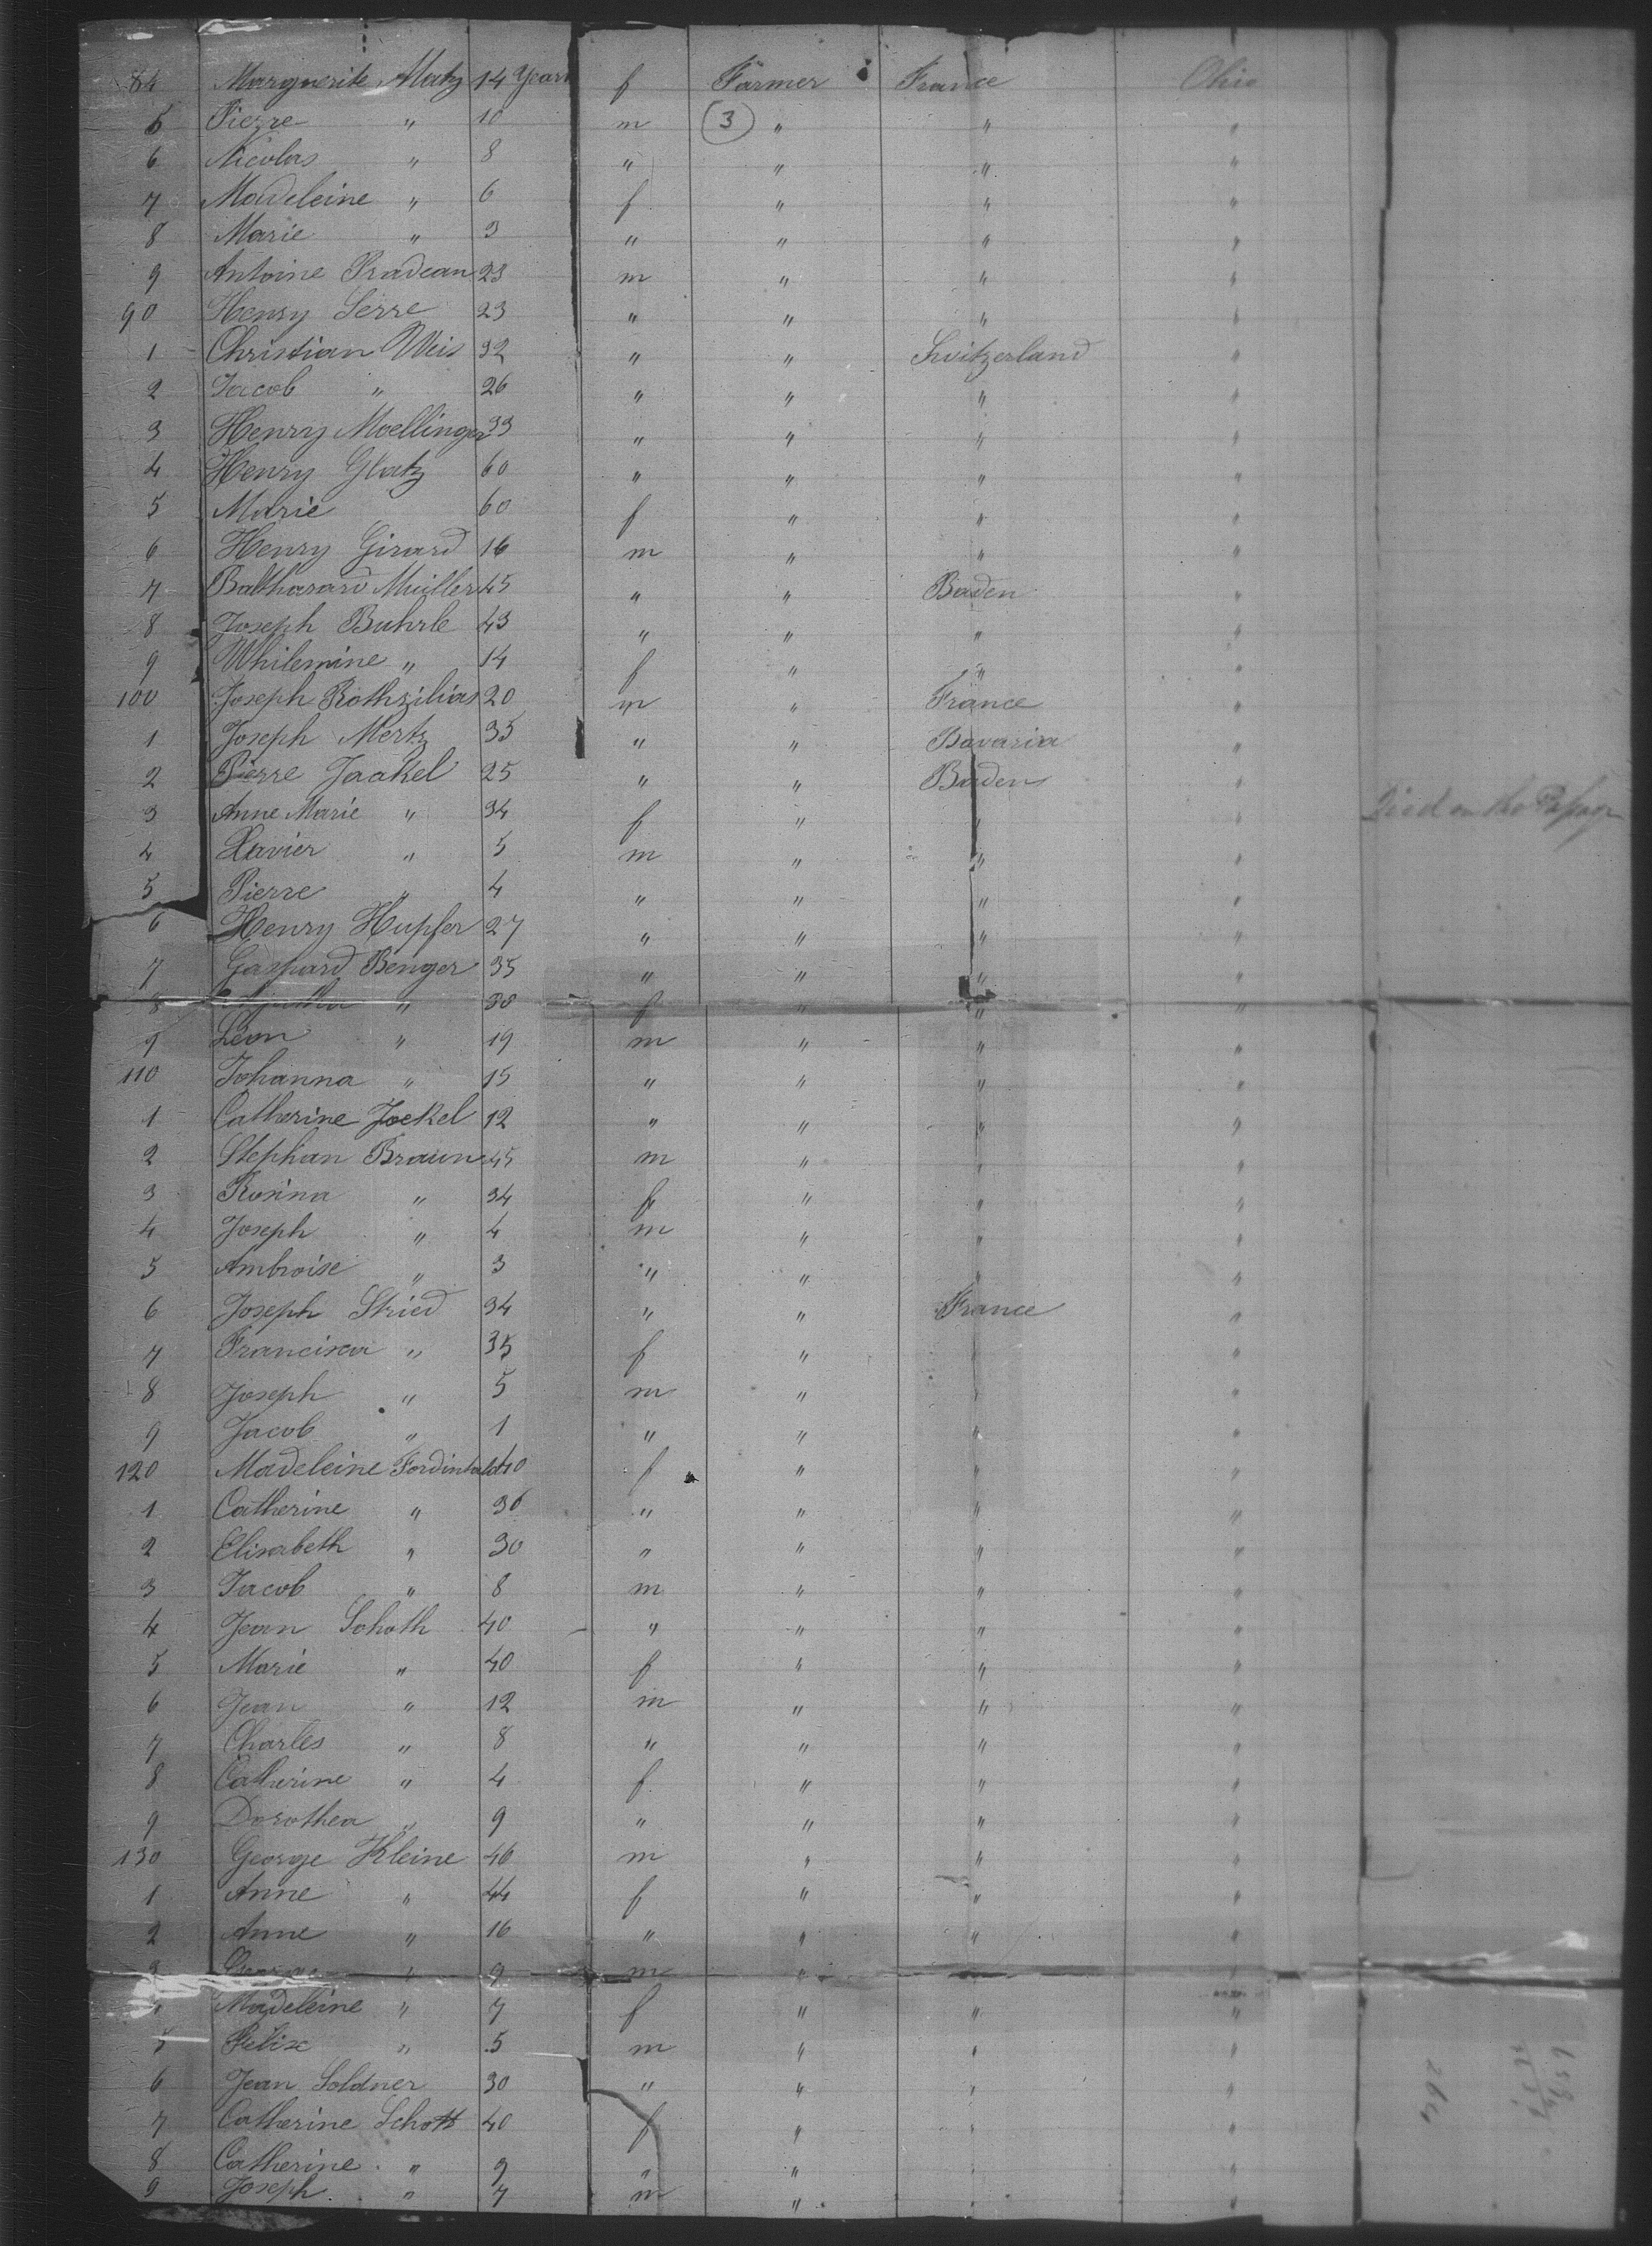 84 Marguerite Matz 14 Years f Farmer France Ohio
5 Pierre " 10 m (3) " " "
6 Nicolas " 8 " " " "
7 Madeleine " 6 f " " "
8 Marie " 3 " " " "
9 Antoine Pradean 23 m " " "
90 Henry Serre 23 " " " "
1 Christian Weis 32 " " Switzerland "
2 Jacob " 26 " " " "
3 Henry Moellinger 33 " " " "
4 Henry Glatz 60 " " " "
5 Marie 60 f " " "
6 Henry Girard 16 m " " "
7 Balthasard Müller 45 " " Baden "
8 Joseph Buhrle 43 " " " "
9 Whilemine " 14 f " " "
100 Joseph Rothzilias 20 m " France "
1 Joseph Mertz 35 " " Bavaria "
2 Pierre Jaakel 25 " " Baden "
3 Anne Marie " 34 f " " " Died on the Passage
4 Xavier " 5 m " " "
5 Pierre " 4 " " " "
6 Henry Hupfer 27 " " " "
7 Gaspard Benger 35 " " " "
8 " 30 f " " "
9 Léon " 19 m " " "
110 Johanna " 15 " " " "
1 Catherine Jockel 12 " " " "
2 Stephan Braun 45 m " " "
3 Rosina " 34 f " " "
4 Joseph " 4 m " " "
5 Ambroise " 3 " " " "
6 Joseph Stried 34 " " France "
7 Francisca " 35 f " " "
8 Joseph " 5 m " " "
9 Jacob " 1 " " " "
120 Madeleine 40 f " " "
1 Catherine " 36 " " " "
2 Elisabeth " 30 " " " "
3 Jacob " 8 m " " "
4 Jean Schoth 40 " " " "
5 Marie " 40 f " " "
6 Jean " 12 m " " "
7 Charles " 8 " " " "
8 Catherine " 4 f " " "
9 Dorothea " 9 " " " "
130 George Kleine 46 m " " "
1 Anne " 44 f " " "
2 Anne " 16 " " " "
3 George " 9 m " " "
4 Madeleine " 7 f " " "
5 Felix " 5 m " " "
6 Jean Soldner 30 " " " "
7 Catherine Schott 40 f " " "
8 Catherine " 9 " " " "
9 Joseph " 7 m " " "